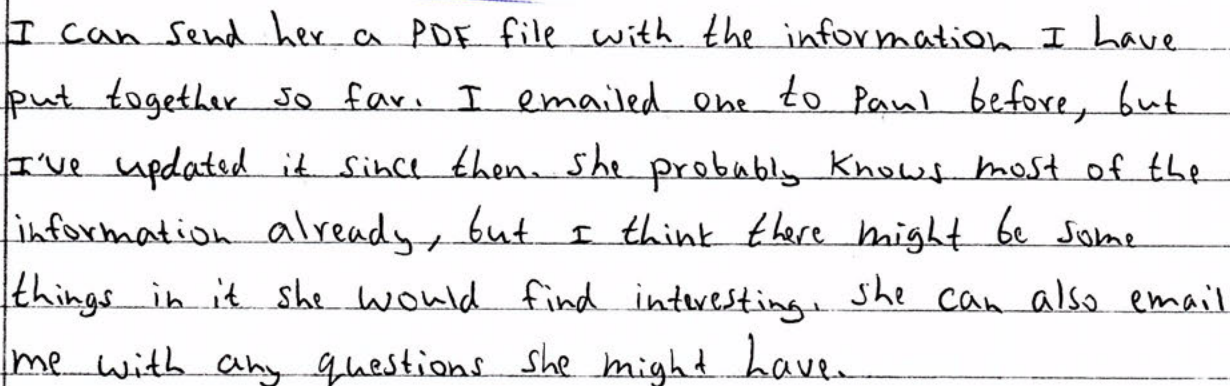 I can send her a PDF file with the information I have
put together so far. I emailed one to Paul before, but
I've updated it since then. She probably knows most of the
information already, but I think there might be some
things in it she would find interesting. She can also email
me with any questions she might have.